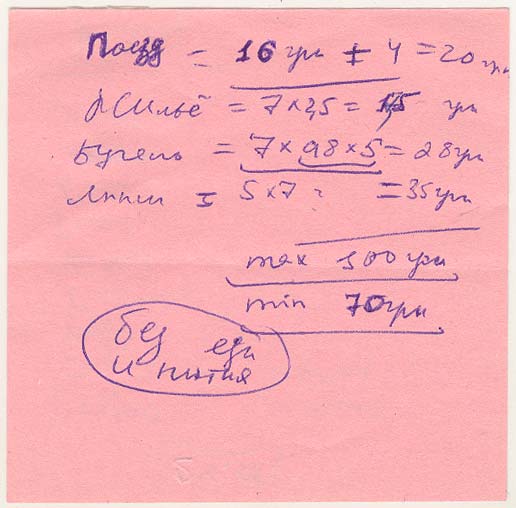 Поезд = 16 грн + 4 = 20 грн
Жильё = 7 × 2,5 = 17,5 грн
Бугель = 7 × 0,8 × 5 = 28 грн
= 5 × 7 = 35 грн
max 100 грн
min 70 грн
без еды
и пития